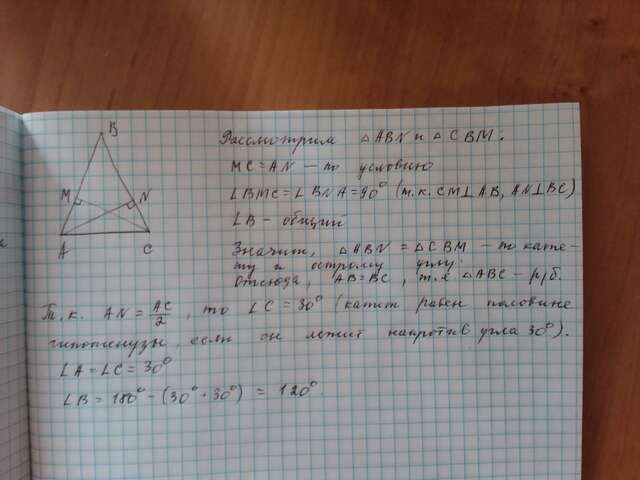 B
M
N
A
C
Рассмотрим △ABN и △CBM.
MC = AN – по условию
∠BMC = ∠BNA = 90° (т.к. CM⊥AB, AN⊥BC)
∠B – общий
Значит, △ABN = △CBM – по кате-
ту и острому углу.
Отсюда, AB = BC, т.е. △ABC – р/б.
Т.к. AN = AC/2, то ∠C = 30° (катет равен половине
гипотенузы, если он лежит напротив угла 30°).
∠A = ∠C = 30°
∠B = 180° – (30° + 30°) = 120°.